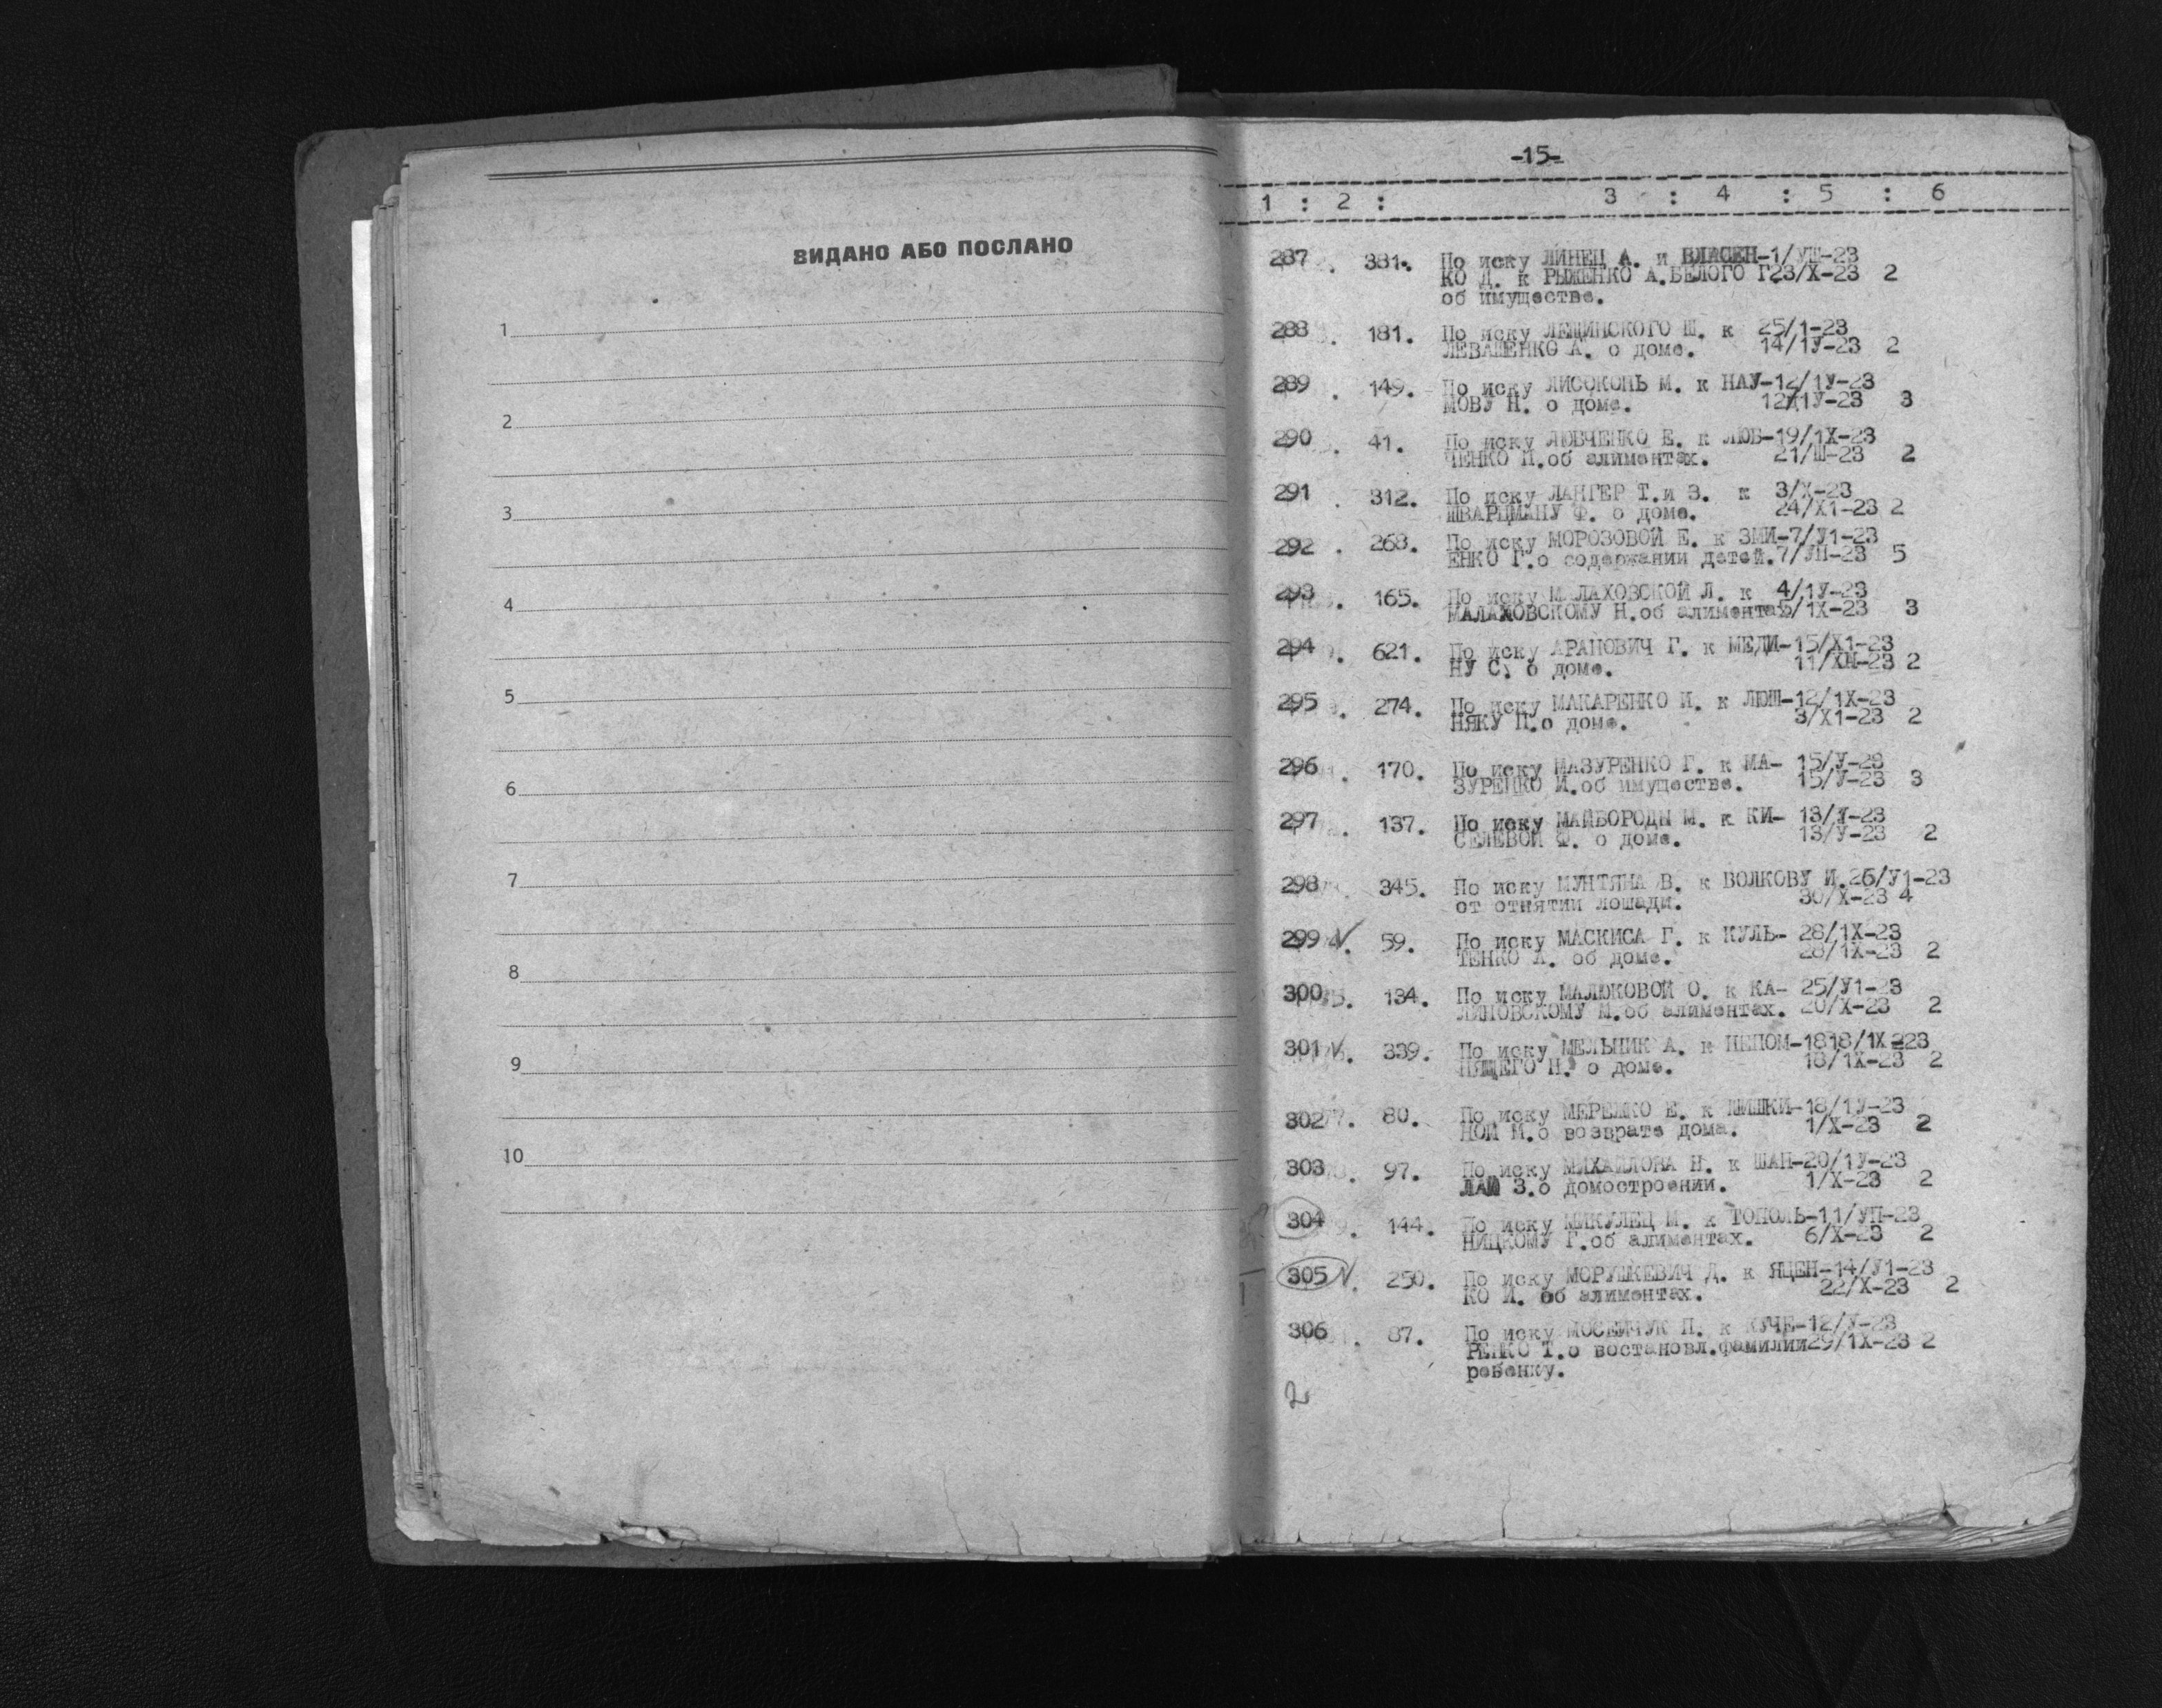 ВИДАНО АБО ПОСЛАНО
1
2
3
4
5
6
7
8
9
10
-15-
1 : 2 : 3 : 4 : 5 : 6
287 . 381. По иску ЛИНЕЦ А. и ВЛАСЕН-1/УШ-23
КО Д. к РЫЖЕНКО А.БЕЛОГО Г23/Х-23 2
об имуществе.
288 . 181. По иску ЛЕЩИНСКОГО Ш. к 25/1-23
ЛЕВАШЕНКО А. о доме. 14/1У-23 2
289 . 149. По иску ЛИСОКОНЬ М. к НАУ-12/1У-23
МОВУ Н. о доме. 12/1У-23 3
290 . 41. По иску ЛЮБЧЕНКО Е. к ЛЮБ-19/1Х-23
ЧЕНКО П.об алиментах. 21/Ш-23 2
291 . 312. По иску ЛАНГЕР Т.и З. к 3/Х-23
ШВАРЦМАНУ Ф. о доме. 24/Х1-23 2
292 . 268. По иску МОРОЗОВОЙ Е. к ЗМИ-7/У1-23
ЕНКО Г.о содержании детей.7/УП-23 5
293 . 165. По иску МАЛАХОВСКОЙ Л. к 4/1У-23
МАЛАХОВСКОМУ Н.об алиментах 5/1Х-23 3
294 . 621. По иску АРАНОВИЧ Г. к МЕДИ-15/Х1-23
НУ С. о доме. 11/ХП-23 2
295 . 274. По иску МАКАРЕНКО И. к ЛЮШ-12/1Х-23
НЯКУ П.о доме. 3/Х1-23 2
296 . 170. По иску МАЗУРЕНКО Г. к МА- 15/У-23
ЗУРЕНКО И.об имуществе. 15/У-23 3
297 . 137. По иску МАЙБОРОДЫ М. к КИ- 13/У-23
СЕЛЕВОЙ Ф. о доме. 13/У-23 2
298 . 345. По иску МУНТЯНА В. к ВОЛКОВУ И.26/У1-23
от отнятии лошади. 30/Х-23 4
299 . 59. По иску МАСКИСА Г. к КУЛЬ- 28/1Х-23
ТЕНКО А. об доме. 28/1Х-23 2
300 . 134. По иску МАЛЮКОВОЙ О. к КА- 25/У1-23
ЛИНОВСКОМУ М.об алиментах. 20/Х-23 2
301 . 339. По иску МЕЛЬНИК А. к НЕПОМ-1818/1Х-223
НЯЩЕГО Н. о доме. 18/1Х-23 2
302 . 80. По иску МЕРЕЖКО Е. к ШИШКИ-18/1У-23
НОЙ М.о возврате дома. 1/Х-23 2
303 . 97. По иску МИХАЙЛОВА Н. к ШАП-20/1У-23
ЛАЙ З.о домостроении. 1/Х-23 2
304 . 144. По иску МИКУЛЕЦ М. к ТОПОЛЬ-11/УП-23
НИЦКОМУ Г.об алиментах. 6/Х-23 2
305 . 250. По иску МОРУШКЕВИЧ Д. к ЯЦЕН-14/У1-23
КО И. об алиментах. 22/Х-23 2
306 . 87. По иску МОСЕЙЧУК П. к КУЧЕ-12/У-23
РЕНКО Т.о востановл.фамилии29/1Х-23 2
ребенку.
2